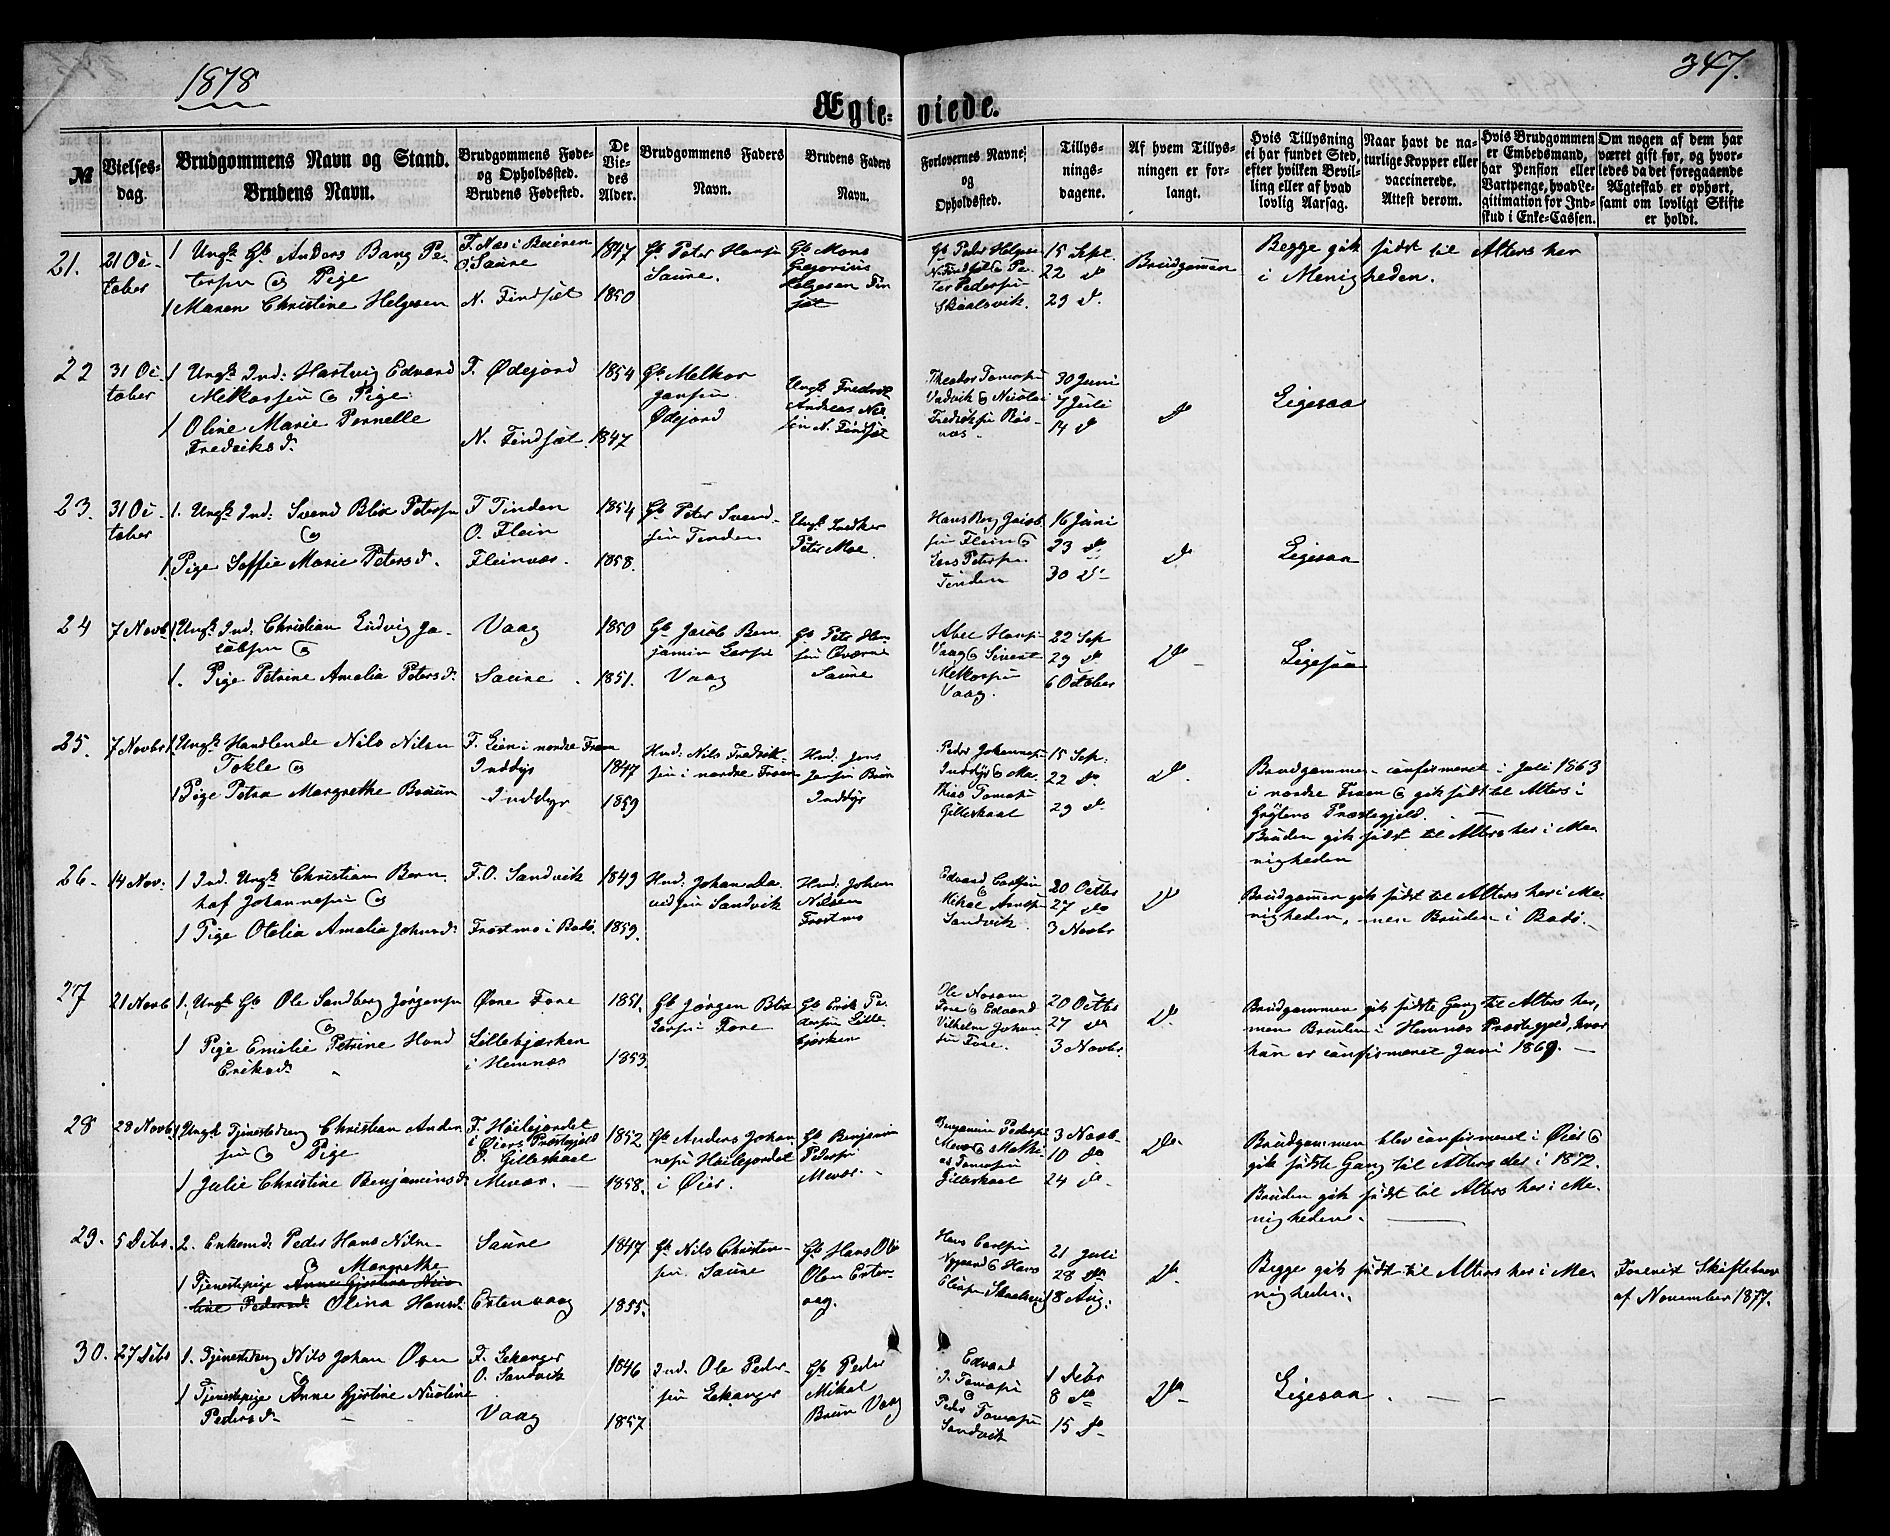 1878
347.
Ægte-viede.
№
Vielses-dag.
Brudgommens Navn og Stand.
Brudens Navn.
Brudgommens Føde-
og Opholdssted.
Brudens Fødested.
De
Vie-
des
Alder.
Brudgommens Faders
Navn.
Brudens Faders
Navn.
Forlovernes Navne,
og
Opholdssted.
Tillys-
nings-
dagene.
Af hvem Tillys-
ningen er for-
langt.
Hvis Tillysning
ei har fundet Sted,
efter hvilken Bevil-
ling eller af hvad
lovlig Aarsag.
Naar havt de na-
turlige Kopper eller
vaccinerede.
Attest derom.
Hvis Brudgommen
er Embedsmand,
har Pension eller
Vartpenge, hvad Le-
gitimation for Ind-
skud i Enke-Cassen.
Om nogen af dem har
været gift før, og hvor-
ledes da det foregaaende
Ægteskab er ophørt,
samt om lovligt Skifte
er holdt.
21.
21 Oc-
tober
1 Ungk Gb Anders Bang Pe-
tersen og Pige
1 Maren Christine Helgesen
F. Næs i Beieren
O. Saure
N. Findsæt
1847
1850
Gb Peter Hansen
Saure.
Gb Mons
Gregorius
Helgesen Fin
sæt
Gb Peder Helgesen
N. Findsæt og Pe-
ter Pedersen
Skaalsvik
15 Sept.
22 do
29 do
Brudgommen
Begge gik sidst til Alters her
i Menigheden.
22
31 Oc-
tober
1 Ungk Ind: Hartvig Edvard
Melkorsen og Pige
1 Oline Marie Pernelle
Fredriksd.
F. Ødejord
N. Findsæt
1854
1847
Gb Melkor
Jansen
Ødejord
Ungk Fredrik
Andreas Nil-
sen N. Findsæt
Theodor Tomasen
Vadvik og Nicolai
Fredriksen Røs-
næs
30 Juni
7 Juli
14 do
do
Ligesaa
23.
31 Oc-
tober
1. Ungk Ind: Svend Blix Petersen
og
1. Pige Soffie Marie Petersd.
F Tinden
O. Flein
Fleinvær.
1854
1858.
Gb Peter Svend-
sen Tinden
Ungk Snedker
Peter Moe.
Hans Borg Jacob-
sen Flein og
Jens Petersen
Tinden
16 Juni
23 do
30 do
do
Ligesaa
24
7 Novb
1. Ungk Ind. Christian Ludvig Ja-
cobsen og
1. Pige Petrine Amalia Petersd.
Vaag
Saure
1850
1851.
Gb Jacob Ben-
jamin Larsen
Vaag
Saure
Abel Hansen
Vaag og Sivert
Melkorsen
Vaag.
22 Sep
29 do
6 October
do
Ligesaa
25.
7 Novbr
1. Ungk Handlende Nils Nilsen
Tokle og
1 Pige Petra Margrethe Bruun
F. Lien i nordre Fron
Inddyr
Inddyr
1847
1859
Hmd: Nils Fredrik-
sen i nordre Fron
Hmd. Jens
Jansen Brun
Inddyr
Peder Johannesen
Inddyr og Ma-
thias Tomasen
Gilleskaal
15 Sep.
22 do
29 do
do
Brudgommen confirmeret i Juli 1863
i nordre Froen og gik sidst til Alters i
Grytens Præstegjeld.
Bruden gik sidst til Alters her i Me-
nigheden
26.
14 Nov:
1 Ind. Ungk Christian Bern-
hof Johannesen og
1 Pige Otelia Amalia Johnsd.
F.O. Sandvik
Frostmo i Bodø.
1849
1859.
Hmd: Johan Da-
vidsen Sandvik
Hmd: Johan
Nilsen
Frostmo
Edvard Carlsen
og
Mikal Arntsen
Sandvik
20 Octbr
27 do
3 Novbr
do
Brudgommen gik sidst til Alters her i Me-
nigheden, men Bruden i Bodø.
27
21 Novb
1. Ungk Gb Ole Sandberg Jörgensen
og
1 Pige Emilie Petrine Hond
Eriksd.
Øvre Fore
Lillebjerken
i Hemnæs
1851.
1853.
Gb Jørgen Blix
Larsen Fore
Gb Erik Pe-
dersen Lille
bjerken
Ole Norum
Fore og Edvard
Vilhelm Johan-
sen Fore.
20 Octbr
27 do
3 Novbr.
do
Brudgommen gik sidste Gang til Alters her,
men Bruden i Hemnæs Præstegjeld, hvor
hun er confirmeret Juni 1869.
28
28 Novb
1 Ungk Tjenestedreng Christian Ander-
sen og Pige
1 Julie Christine Benjaminsd.
F. Höilejordet
i Øiers Præstegjeld
O. Gilleskaal
Mevær.
1852
1858.
Gb Anders Johan-
nesen Höilejordet
i Øier.
Gb Benjamin
Pedersen
Mevær
Benjamin Pedersen
Mevær og Mathi-
as Tomasen
Gilleskaal
3 Novb.
10 do
24 do
do
Brudgommen blev confirmeret i Øier og
gik sidste Gang til Alters der i 1872.
Bruden gik sidst til Alters her i Me-
nigheden.
29.
5 Decbr.
2. Enkemd: Peder Hans Nilsen
og Margrethe
1 Tjenestepige Anne Gjertine Nico-
line Pedersd. Olina Hansd.
Saure
Estenvaag
1847
1855.
Gb Nils Christen-
sen. Saure
Gb Hans Ole
Olsen Esten-
vaag.
Hans Carlsen
Nygaard og Hans
21 Juli
28 do
18 Aug.
do
Begge gik sidst til Alters her i Me-
nigheden.
Forevist Skiftebrev
af November 1877.
30.
27 Decbr
1. Tjenestedreng Nils Johan Olsen
og
1 Tjenestepige Anne Gjertine Nicoline
Pedersd.
F. Lekanger
O. Sandvik
Vaag
1846
1857.
Ind. Ole Peder-
sen Lekanger
Gb Peder
Mikal
Brun Vaag
Edvard
J. Tomasen
og
Peder Tomasen
Sandvik
1 Decbr
8 do
15 do
do
Ligesaa.